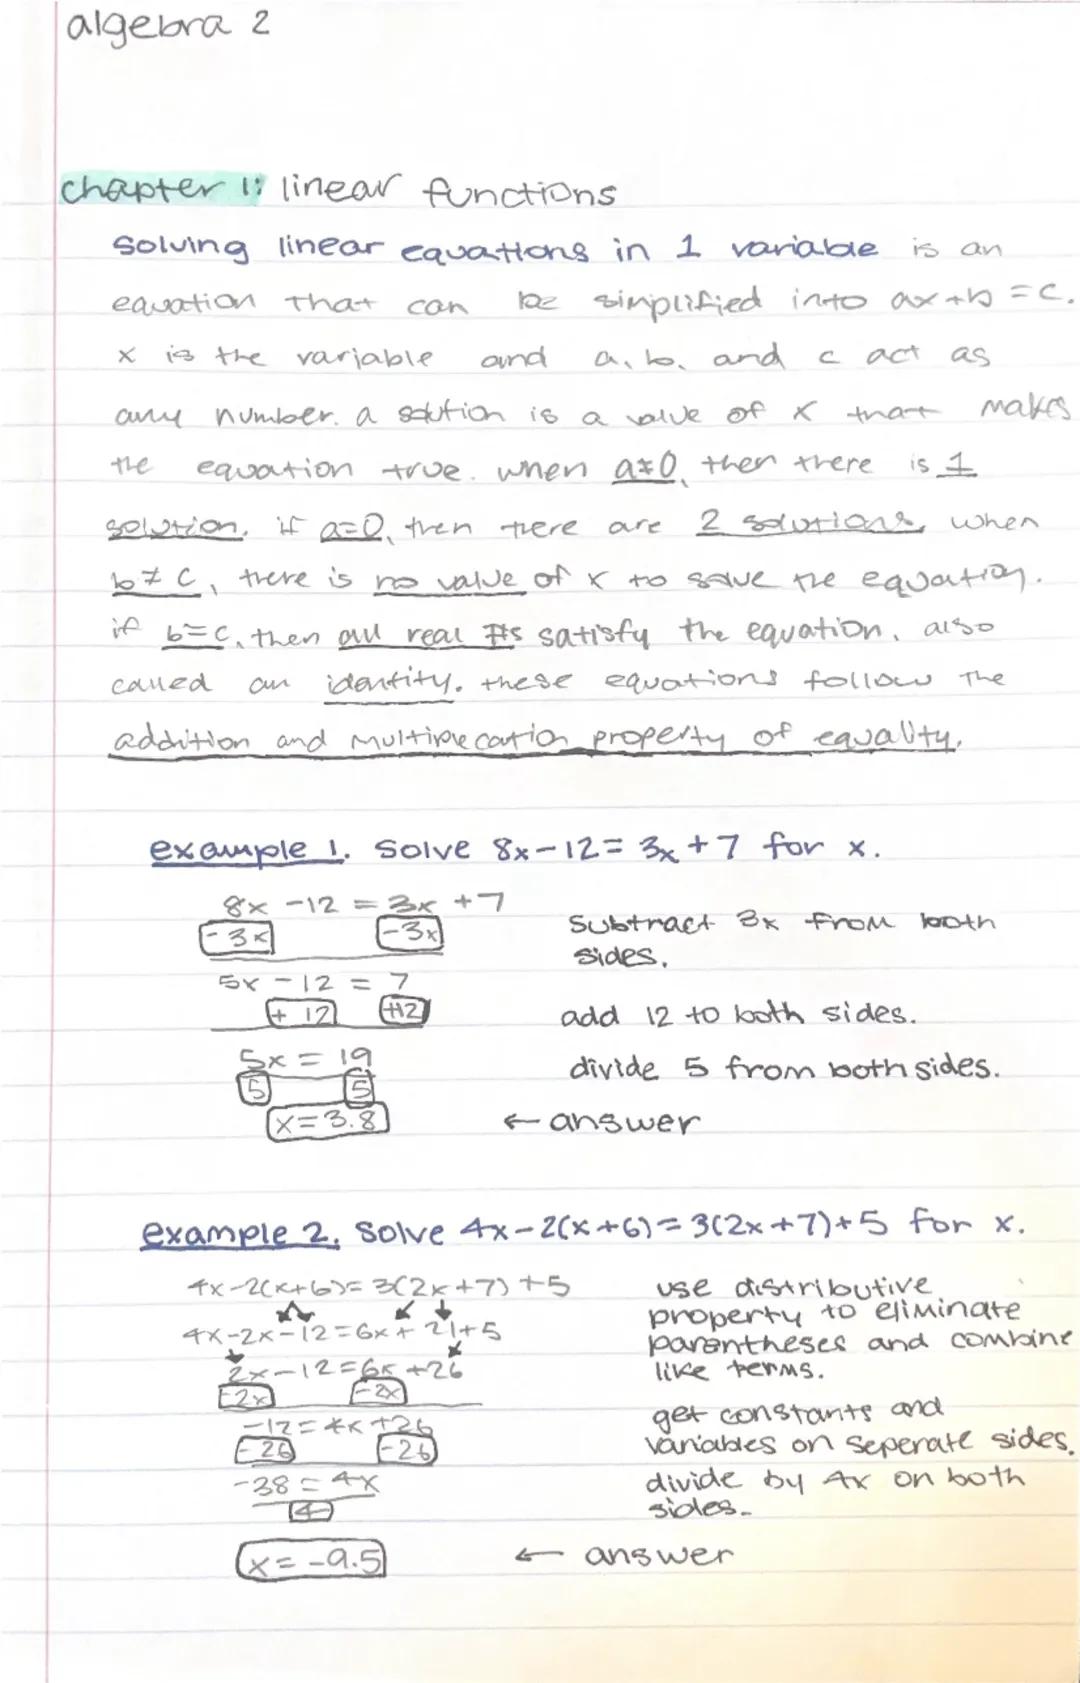 algebra 2
chapter 1: linear functions
solving linear equations in 1 variable is an
equation that can be simplified into ax+b=c.
x is the variable and a, b, and c act as
any number. a solution is a value of x that makes
the equation true. when a≠0, then there is 1
solution. if a=0, then there are 2 solutions, when
b≠c, there is no value of x to solve the equation.
if b=c, then all real #s satisfy the equation, also
called an identity. these equations follow the
addition and multiplecation property of equality.
example 1. solve 8x-12=3x+7 for x.
8x -12 = 3x +7
-3x -3x
subtract 3x from both
sides.
5x -12 = 7
+ 12 +12
add 12 to both sides.
5x = 19
5 5
divide 5 from both sides.
x=3.8 ← answer
example 2. solve 4x-2(x+6)=3(2x+7)+5 for x.
4x-2(x+6)=3(2x+7)+5
use distributive
property to eliminate
parentheses and combine
like terms.
4x-2x-12=6x+21+5
2x-12=6x+26
-2x -2x
-12=4x+26
-26 -26
get constants and
variables on seperate sides.
-38=4x
4
divide by 4x on both
sides.
x=-9.5 ← answer